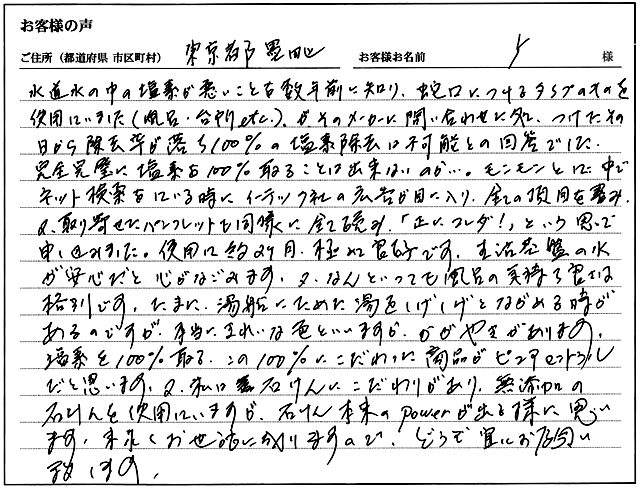 お客様の声
ご住所（都道府県 市区町村） 東京都墨田区 お客様お名前 Y 様
水道水の中の塩素が悪いことを数年前に知り、蛇口につけるタイプのものを
使用していました（風呂・台所etc.）。がそのメーカーに問い合わせた処、つけたその
日から除去率が落ち100%の塩素除去は不可能との回答でした。
完全完璧に塩素を100%取ることは出来ないのか…。モンモンとした中で
ネット検索をしている時にイーテック社の広告が目に入り、全ての項目を読み、
又、取り寄せたパンフレットも同様に全て読み、「正にコレダ！」という思いで
申し込みました。使用して約2ヶ月、極めて良好です。生活基盤の水
が安心だと心がなごみます。又なんといっても風呂の気持ち良さは
格別です。たまに、湯船にためた湯をしげしげとながめる時が
あるのですが、本当にきれいな色といいますか、かがやきがあります。
塩素を100%取る。この100%にこだわった商品がピュアセントラル
だと思います。又、私は石けんにこだわりがあり、無添加の
石けんを使用していますが、石けん本来のpowerが出る様に思い
ます。末永くお世話に成りますので、どうぞ宜しくお願い
致します。